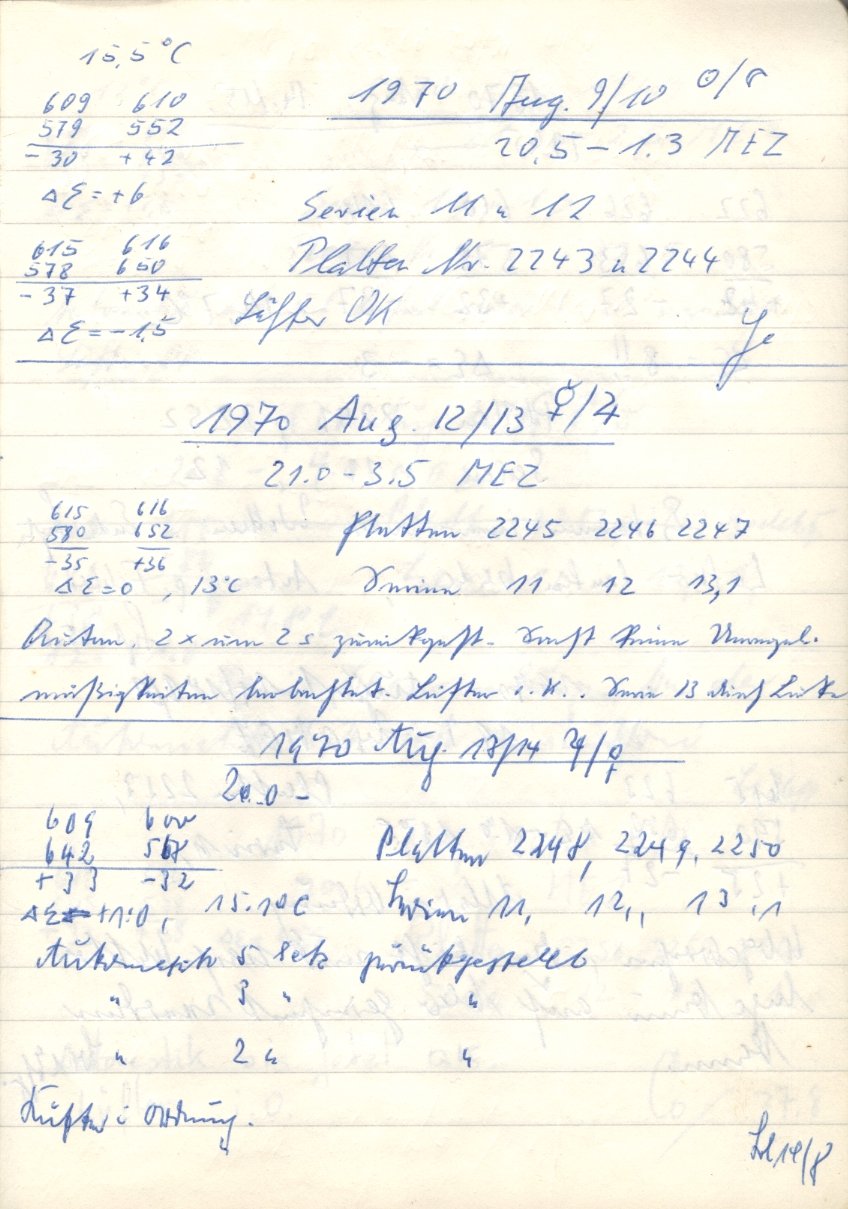 15,5°C
1970 Aug. 9/10 ☉/☾
20.5 – 1.3 MEZ
609 610
579 552
-30 +42
Δε = +6
Serien 11 u 12
615 616
578 650
-37 +34
Δε = -1,5
Platten Nr. 2243 u 2244
Lüfter OK
1970 Aug. 12/13 ☿/♃
21.0 – 3.5 MEZ
615 616
580 652
-35 +36
Δε = 0 , 13°C
Platten 2245 2246 2247
Serien 11 12 13,1
Autom. 2 x um 2 s zurückgest. Sonst keine Unregel-
mäßigkeiten beobachtet. Lüfter o.K.. Serie 13 durch
1970 Aug 13/14 ♃/♀
20.0 –
609 600
642 568
+33 -32
Δε +1.0, 15.1°C
Platten 2248, 2249, 2250
Serien 11, 12,, 13,1
Automatik 5 Sek zurückgestellt
" 3 " "
" 2 " "
Lüfter i Ordnung.
14/8